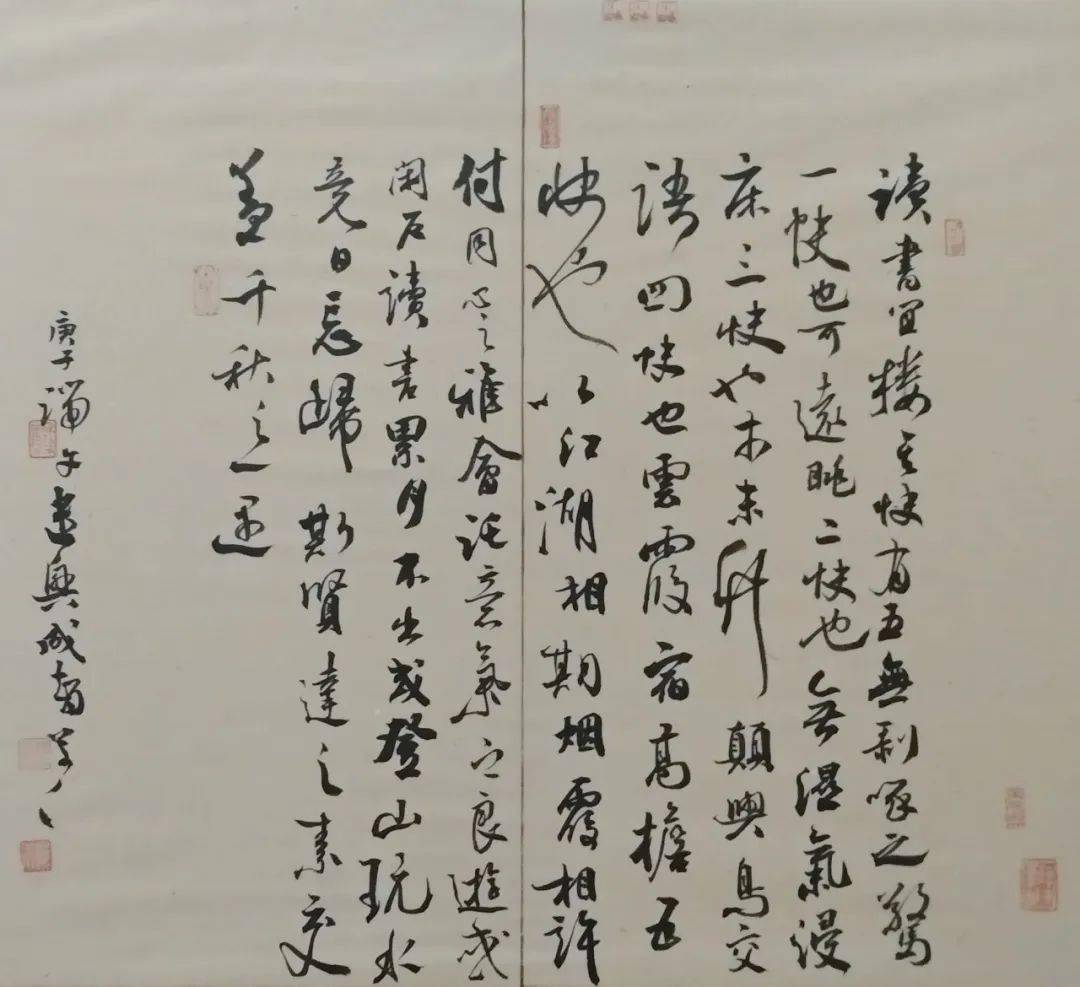 读書宜楼其快有五無剥啄之驚
一快也可遠眺二快也無湿氣浸
床三快也木末竹颠與鳥交
語四快也雲霞宿高檐五
快也以江湖相期烟霞相許
付同心之雅會託意氣之良遊或
闭户读書累月不出或登山玩水
竟日忘歸斯賢達之素交
盖千秋之一遇
庚子端午遣興成